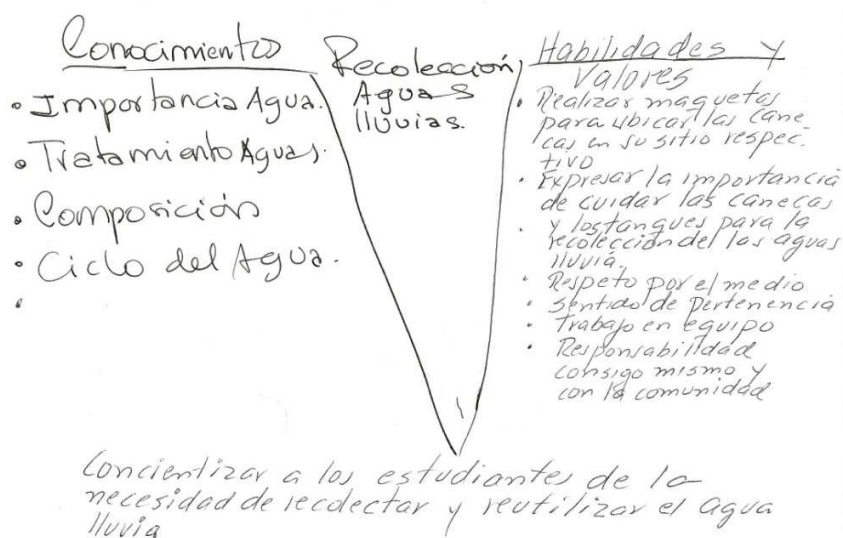 Conocimientos
• Importancia Agua.
• Tratamiento Aguas.
• Composición
• Ciclo del Agua.
•
Recolección
Aguas
lluvias.
Habilidades y
Valores
• Realizar maquetas
para ubicar las cane-
cas en su sitio respec-
tivo
• Expresar la importancia
de cuidar las canecas
• y los tanques para la
recolección del las aguas
lluvia.
• Respeto por el medio
• Sentido de pertenencia
• Trabajo en equipo
• Responsabilidad
consigo mismo y
con la comunidad
Concientizar a los estudiantes de la
necesidad de recolectar y reutilizar el agua
lluvia